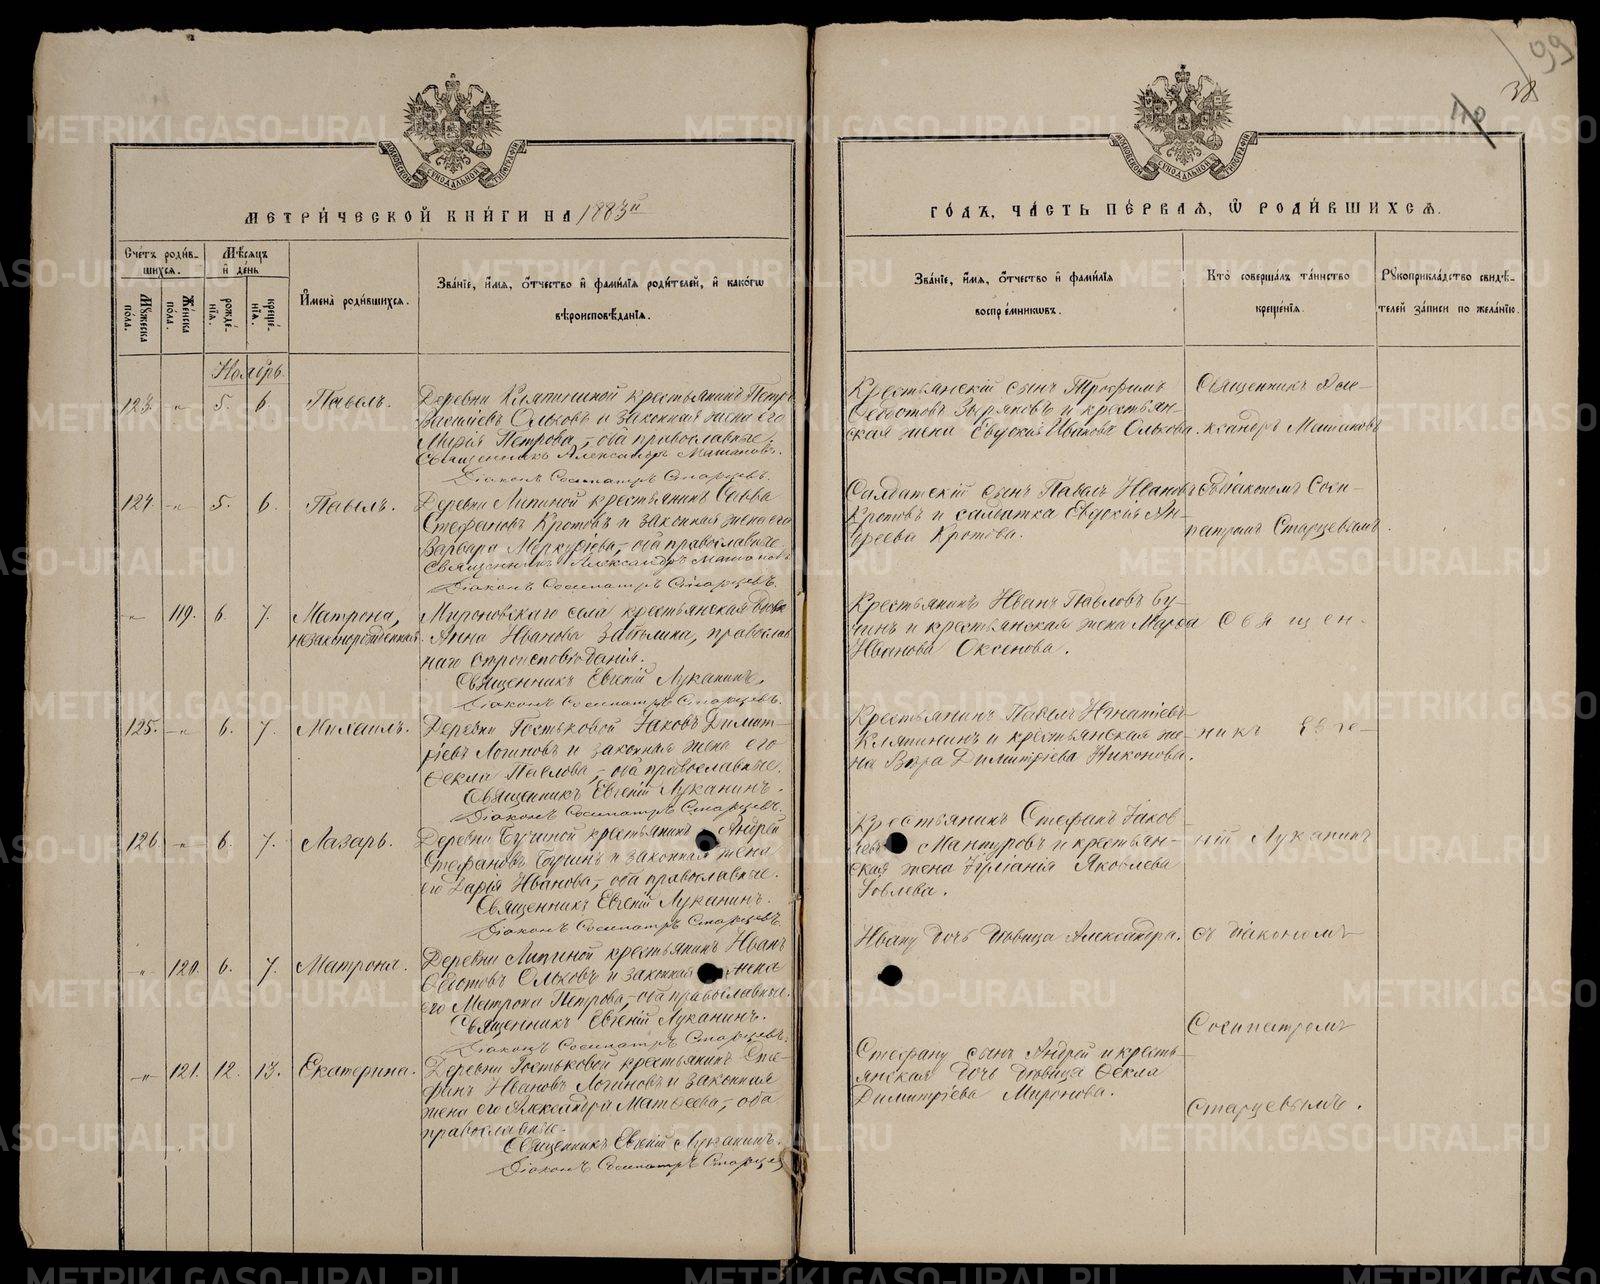 99
38
Пр
МОСКОВСКОЙ СУНОДАЛЬНОЙ ТИПОГРАФІИ
МОСКОВСКОЙ СУНОДАЛЬНОЙ ТИПОГРАФІИ
МЕТРИ́ЧЕСКОЙ КНИ́ГИ НА 1883й
ГО́ДЪ, ЧА́СТЬ ПЕ́РВАЯ, Ѡ РОДИ́ВШИХСЯ.
Счетъ роди́в-
шихся.
Мѣсяцъ
и день
Мужеска
пола.
Женска
пола.
рожде́-
нія.
креще́-
нія.
Имена роди́вшихся.
Зва́ніе, имя, отчество и фами́лія роди́телей, и како́гѡ
вѣроисповѣданія.
Зва́ніе, имя, отчество и фами́лія
воспріемниковъ.
Кто соверша́лъ та́инство
креще́нія.
Рукоприкла́дство свидѣ-
телей за́писи по жела́нію.
Ноябрь.
123. „ 5. 6. Павелъ.
Деревни Кляпиной крестьянинъ Петръ
Васильевъ Ольховъ и законная жена его
Марія Петрова, – оба православные.
Священникъ Александръ
Діаконъ Сосипатръ Старцевъ.
Крестьянскій сынъ Трофимъ
Ѳедотовъ Зыряновъ и крестьян-
ская жена Евдокія Иванова Ольхова.
Священникъ Але-
ксандръ
124. „ 5. 6. Павелъ.
Деревни Липиной крестьянинъ Савва
Стефановъ Кротовъ и законная жена его
Варвара Меркуріева, – оба православные.
Священникъ Александръ
Діаконъ Сосипатръ Старцевъ.
Солдатскій сынъ Павелъ Ивановъ
Кротовъ и солдатка Евдокія Ан-
дреева Кротова.
съ діакономъ Соси-
патромъ Старцевымъ.
„ 119. 6. 7. Матрона,
незаконнорожденная.
Мироновскаго села крестьянская вдова
Анна Иванова православ
наго вѣроисповѣданія.
Священникъ Евгеній Луканинъ.
Діаконъ Сосипатръ Старцевъ.
Крестьянинъ Иванъ Павловъ Бу-
чинъ и крестьянская жена Марѳа
Иванова Оксенова.
Священ-
125. „ 6. 7. Михаилъ.
Деревни Гостьковой Іаковъ Димит-
ріевъ Логиновъ и законная жена его
Ѳекла Павлова, – оба православные.
Священникъ Евгеній Луканинъ.
Діаконъ Сосипатръ Старцевъ.
Крестьянинъ Павелъ Игнатіевъ
Кляпининъ и крестьянская же-
на Вѣра Димитріева Никонова.
никъ Евге-
126. „ 6. 7. Лазарь.
Деревни Бучиной крестьянинъ Андрей
Стефановъ Бучинъ и законная жена
его Дарія Иванова, – оба православные.
Священникъ Евгеній Луканинъ.
Діаконъ Сосипатръ Старцевъ.
Крестьянинъ Стефанъ Іаков-
левъ Мантуровъ и крестьян-
ская жена Іуліанія Яковлева
ній Луканинъ
„ 120. 6. 7. Матрона.
Деревни Липиной крестьянинъ Иванъ
Ѳедотовъ Ольховъ и законная жена
его Матрона Петрова, – оба православные.
Священникъ Евгеній Луканинъ.
Діаконъ Сосипатръ Старцевъ.
Ивану дочь дѣвица Александра.
съ діакономъ
Сосипатромъ
„ 121. 12. 13. Екатерина.
Деревни Гостьковой крестьянинъ Сте-
фанъ Ивановъ Логиновъ и законная
жена его Александра Матѳеева, – оба
православные.
Священникъ Евгеній Луканинъ.
Діаконъ Сосипатръ Старцев
Стефану сынъ Андрей и кресть-
янская дочь дѣвица Ѳекла
Димитріева Миронова.
Старцевымъ.
METRIKI.GASO-URAL.RU